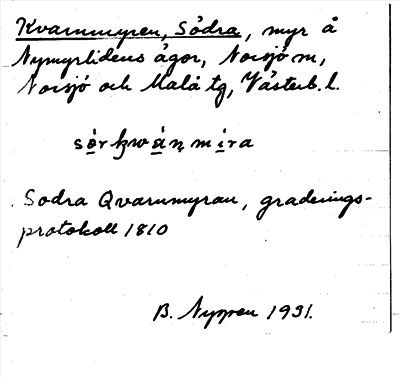 Kvarnmyren, Södra, myr å
Nymyrlidens ägor, Norsjö sn,
Norsjö och Malå tg, Västerb. l.
Sodra Qvarnmyran, graderings-
protokoll 1810
B. Nyppen 1931.